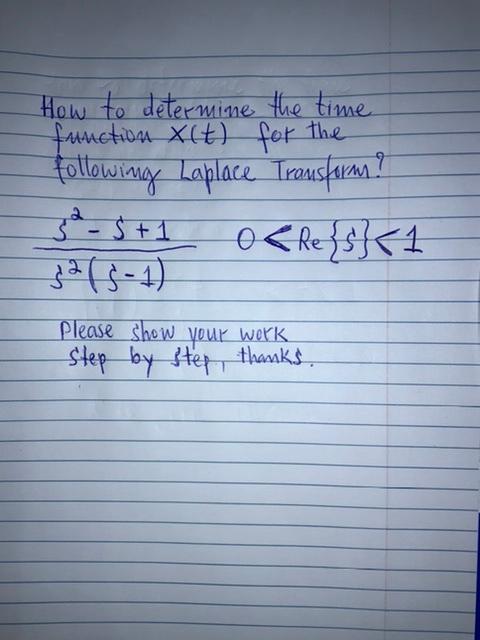 How to determine the time
function X(t) for the
following Laplace Transform?
s² - s + 1
s² (s - 1)
0 < Re{s} < 1
Please show your work
step by step, thanks.